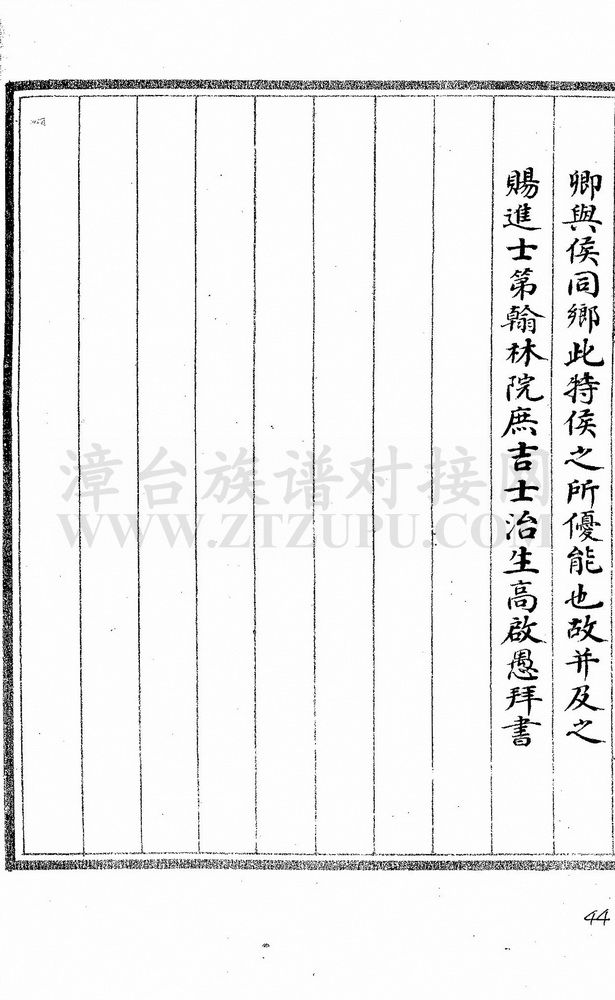 卿與侯同鄉此特侯之所優能也故并及之
賜進士第翰林院庶吉士治生高啟愚拜書
漳台族谱对接网
WWW.ZTZUPU.COM
44